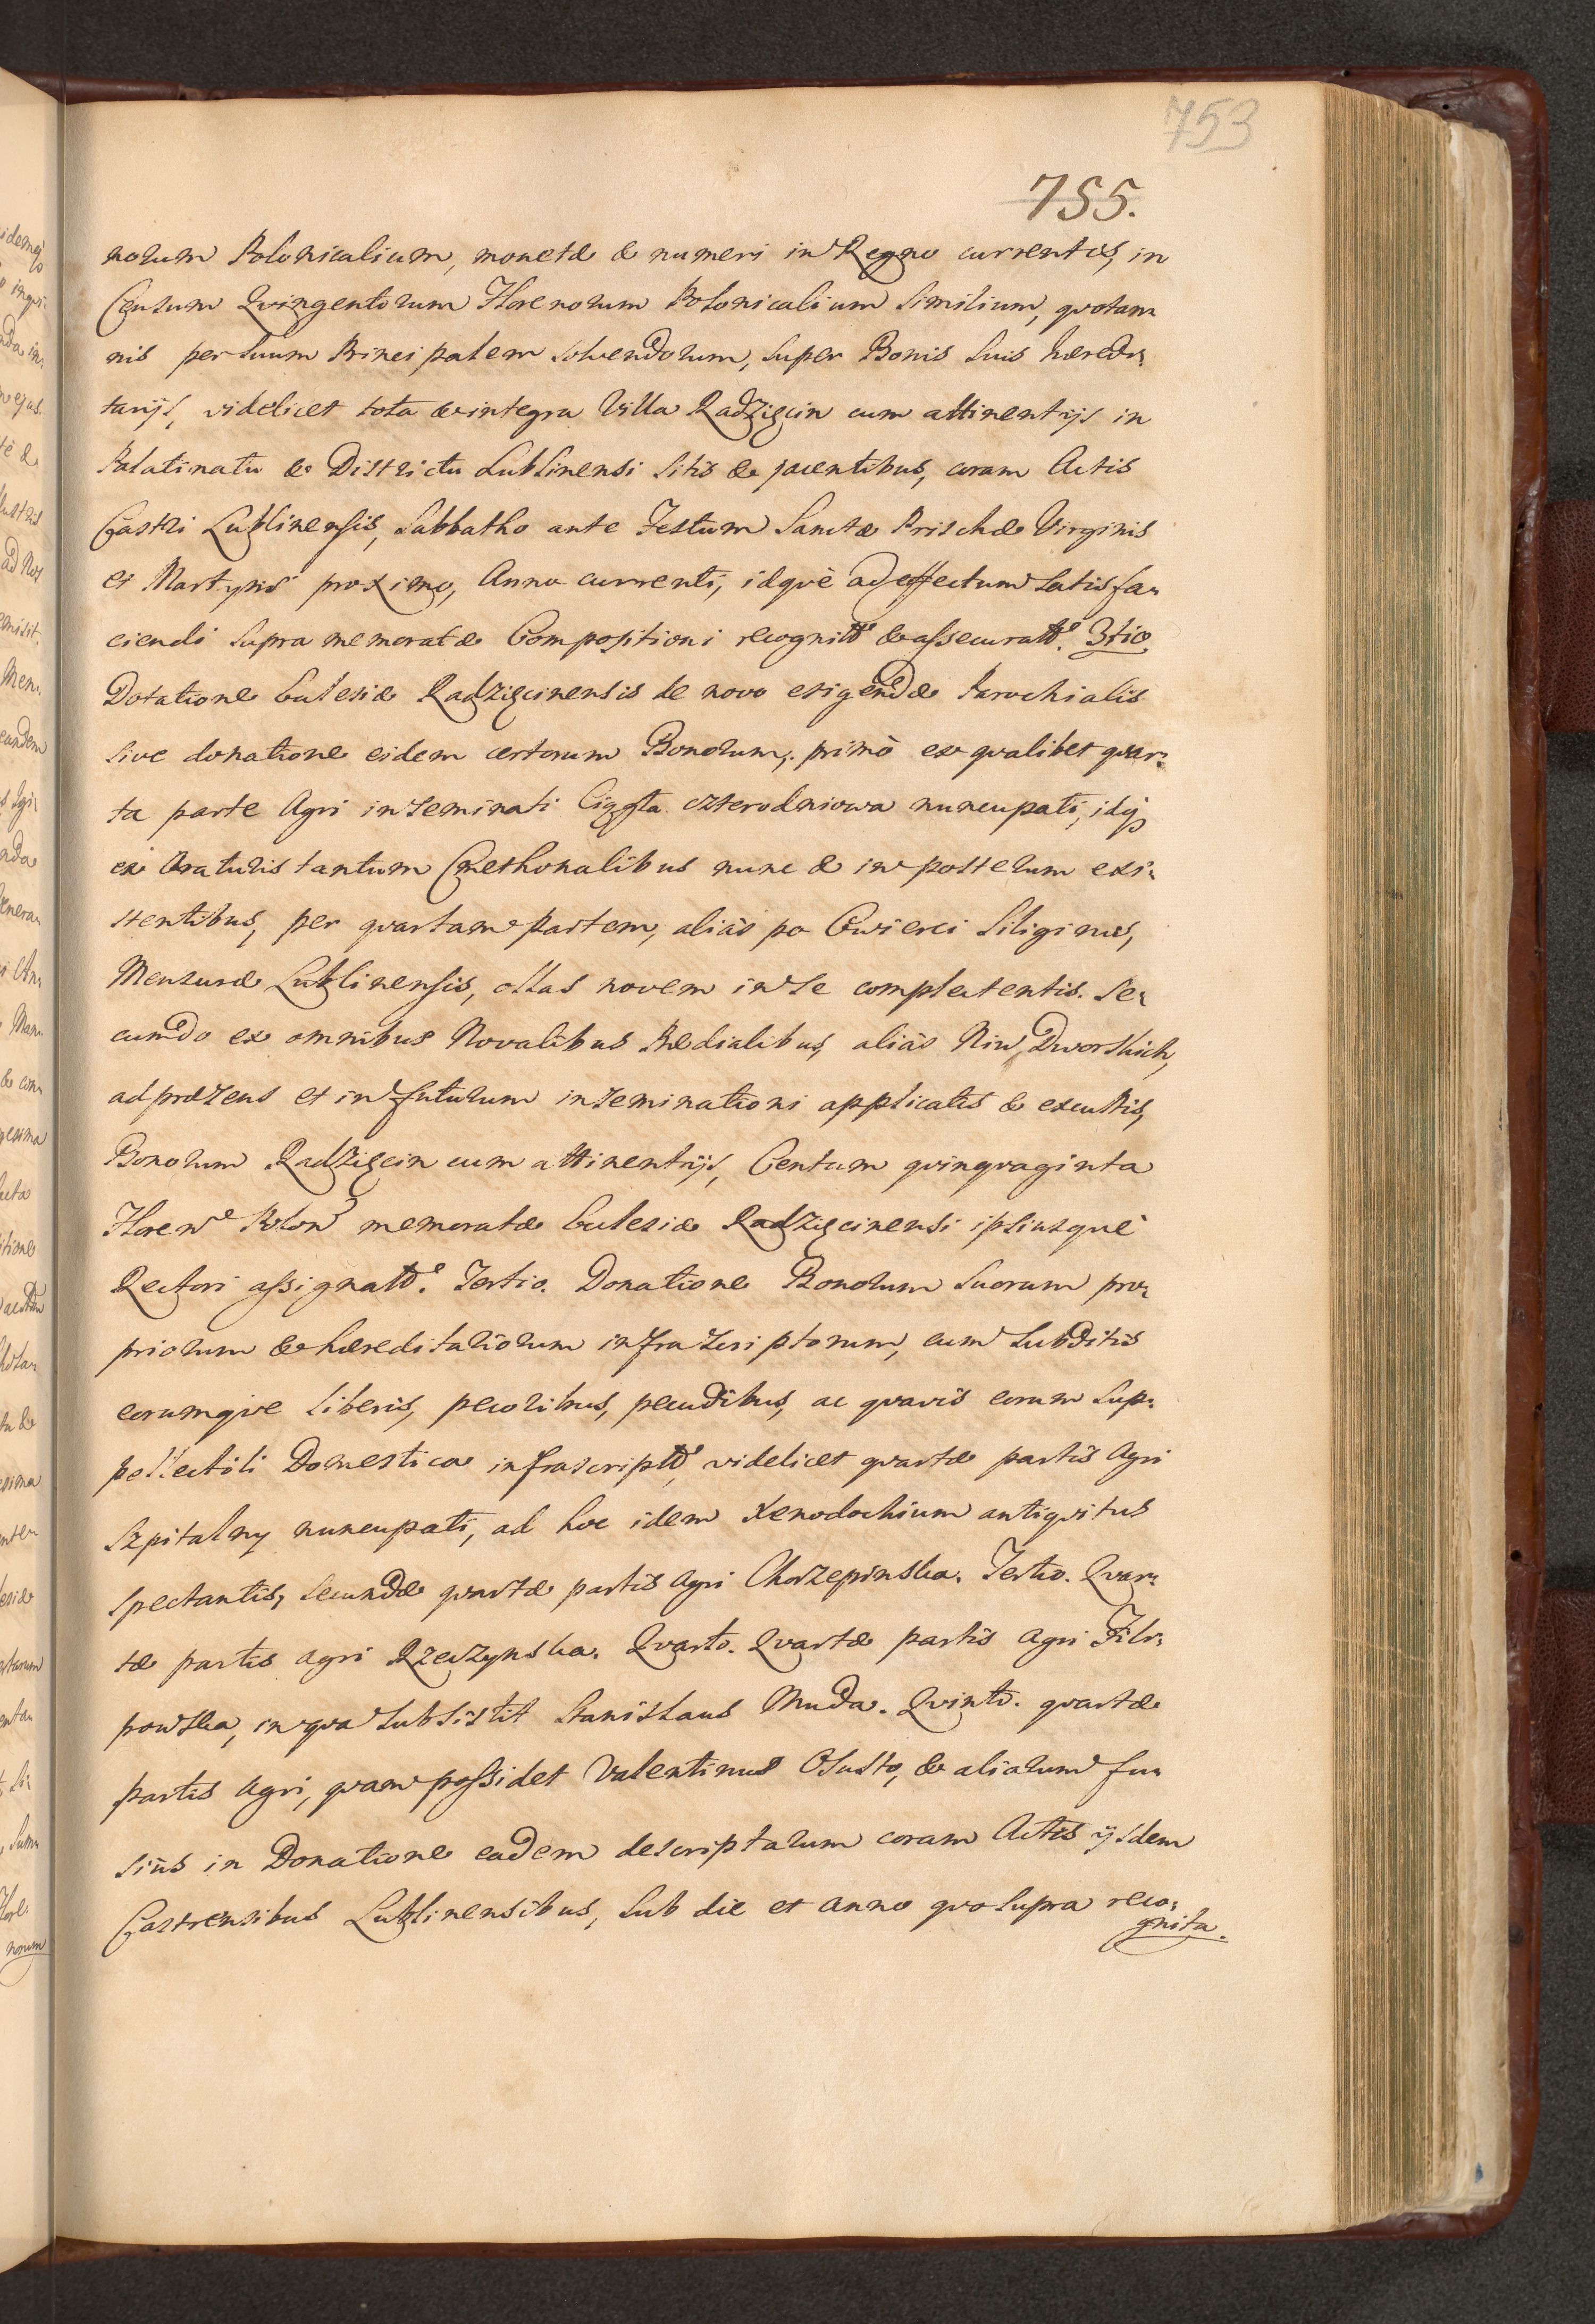 753
755.
norum Polonicalium, monetæ & numeri in Regno currentis, in
Censum Qvingentorum Florenorum Polonicalium similium, qvotan„
nis per suum Principalem solvendorum, super Bonis suis hæredi„
tarijs, videlicet tota & integra Villa Radzięcin cum attinentijs in
Palatinatu & Districtu Lublinensi sitis & jacentibus, coram Actis
Castri Lublinensis, Sabbatho ante Festum Sanctæ Prischæ Virginis
et Martyris proximo, Anno currenti, idqvè ad effectum satisfa„
ciendi supra memoratæ Compositioni recognitt. & assecuratt. 3tio.
Dotatione Eulesiæ Radzięcinensis de novo erigendæ Parochialis
sive donatione eidem certorum Bonorum; primò ex qvalibet qvar„
ta parte Agri inseminati Ciągła czterodniowa nuncupati, idq;
ex Araturis tantum Cmethonalibus nunc & in posterum exi„
stentibus, per qvartam partem, aliàs po Cwierci Siliginis,
Mensuræ Lublinensis, ollas novem in se complectentis. Se„
cundo ex omnibus Novalibus Prædialibus, aliàs Niw Dworskich,
ad præsens et in futurum inseminationi applicatis & excultis,
Bonorum Radzięcin cum attinentijs, Centum qvinqvaginta
Floren Polon memoratæ Eulesiæ Radzięcinensi ipsiusqvè
Rectori assignatt. Tertio. Donatione Bonorum suorum pro„
priorum & hæreditariorum infrascriptorum, cum subditis
eorumqve liberis, pecoribus, pecudibus, ac qvavis eorum sup„
pellectili Domestica infrascriptt, videlicet qvartæ partis Agri
Szpitalny nuncupati, ad hoc idem Xenodochium antiqvitus
spectantis, secundæ qvartæ partis Agri Chorzepinska. Tertio. Qvar„
tæ partis agri Rzeczynska. Qvarto. Qvartæ partis Agri Fili„
powska, in qva subsistit Stanislaus Muda. Qvintò. qvartæ
partis Agri, qvam possidet Valentinus & aliarum fu„
siùs in Donatione eadem descriptarum coram Actis ijsdem
Castrensibus Lublinensibus, sub die et anno qvo supra reco„
gnita.